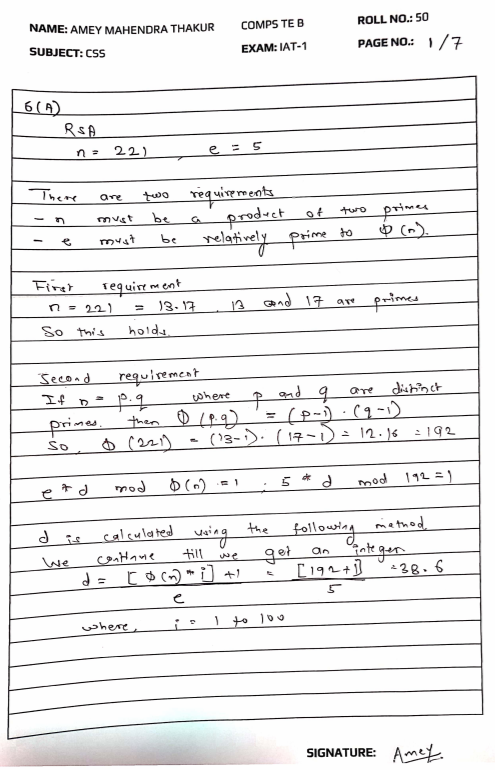 NAME: AMEY MAHENDRA THAKUR COMPS TE B ROLL NO.: 50
SUBJECT: CSS EXAM: IAT-1 PAGE NO.: 1/7
6(A)
RSA
n = 221, e = 5
There are two requirements
- n must be a product of two primes
- e must be relatively prime to Φ(n).
First requirement
n = 221 = 13·17, 13 and 17 are primes
So this holds.
Second requirement
If n = p.q where p and q are distinct
primes. then Φ(p.q) = (p-1)·(q-1)
So, Φ(221) = (13-1)·(17-1) = 12.16 = 192
e * d mod Φ(n) = 1 ; 5 * d mod 192 = 1
d is calculated using the following method
We continue till we get an integer
d = [Φ(n) * i] + 1 = [192 + 1] = 38.6
e 5
where, i = 1 to 100
SIGNATURE: Amey